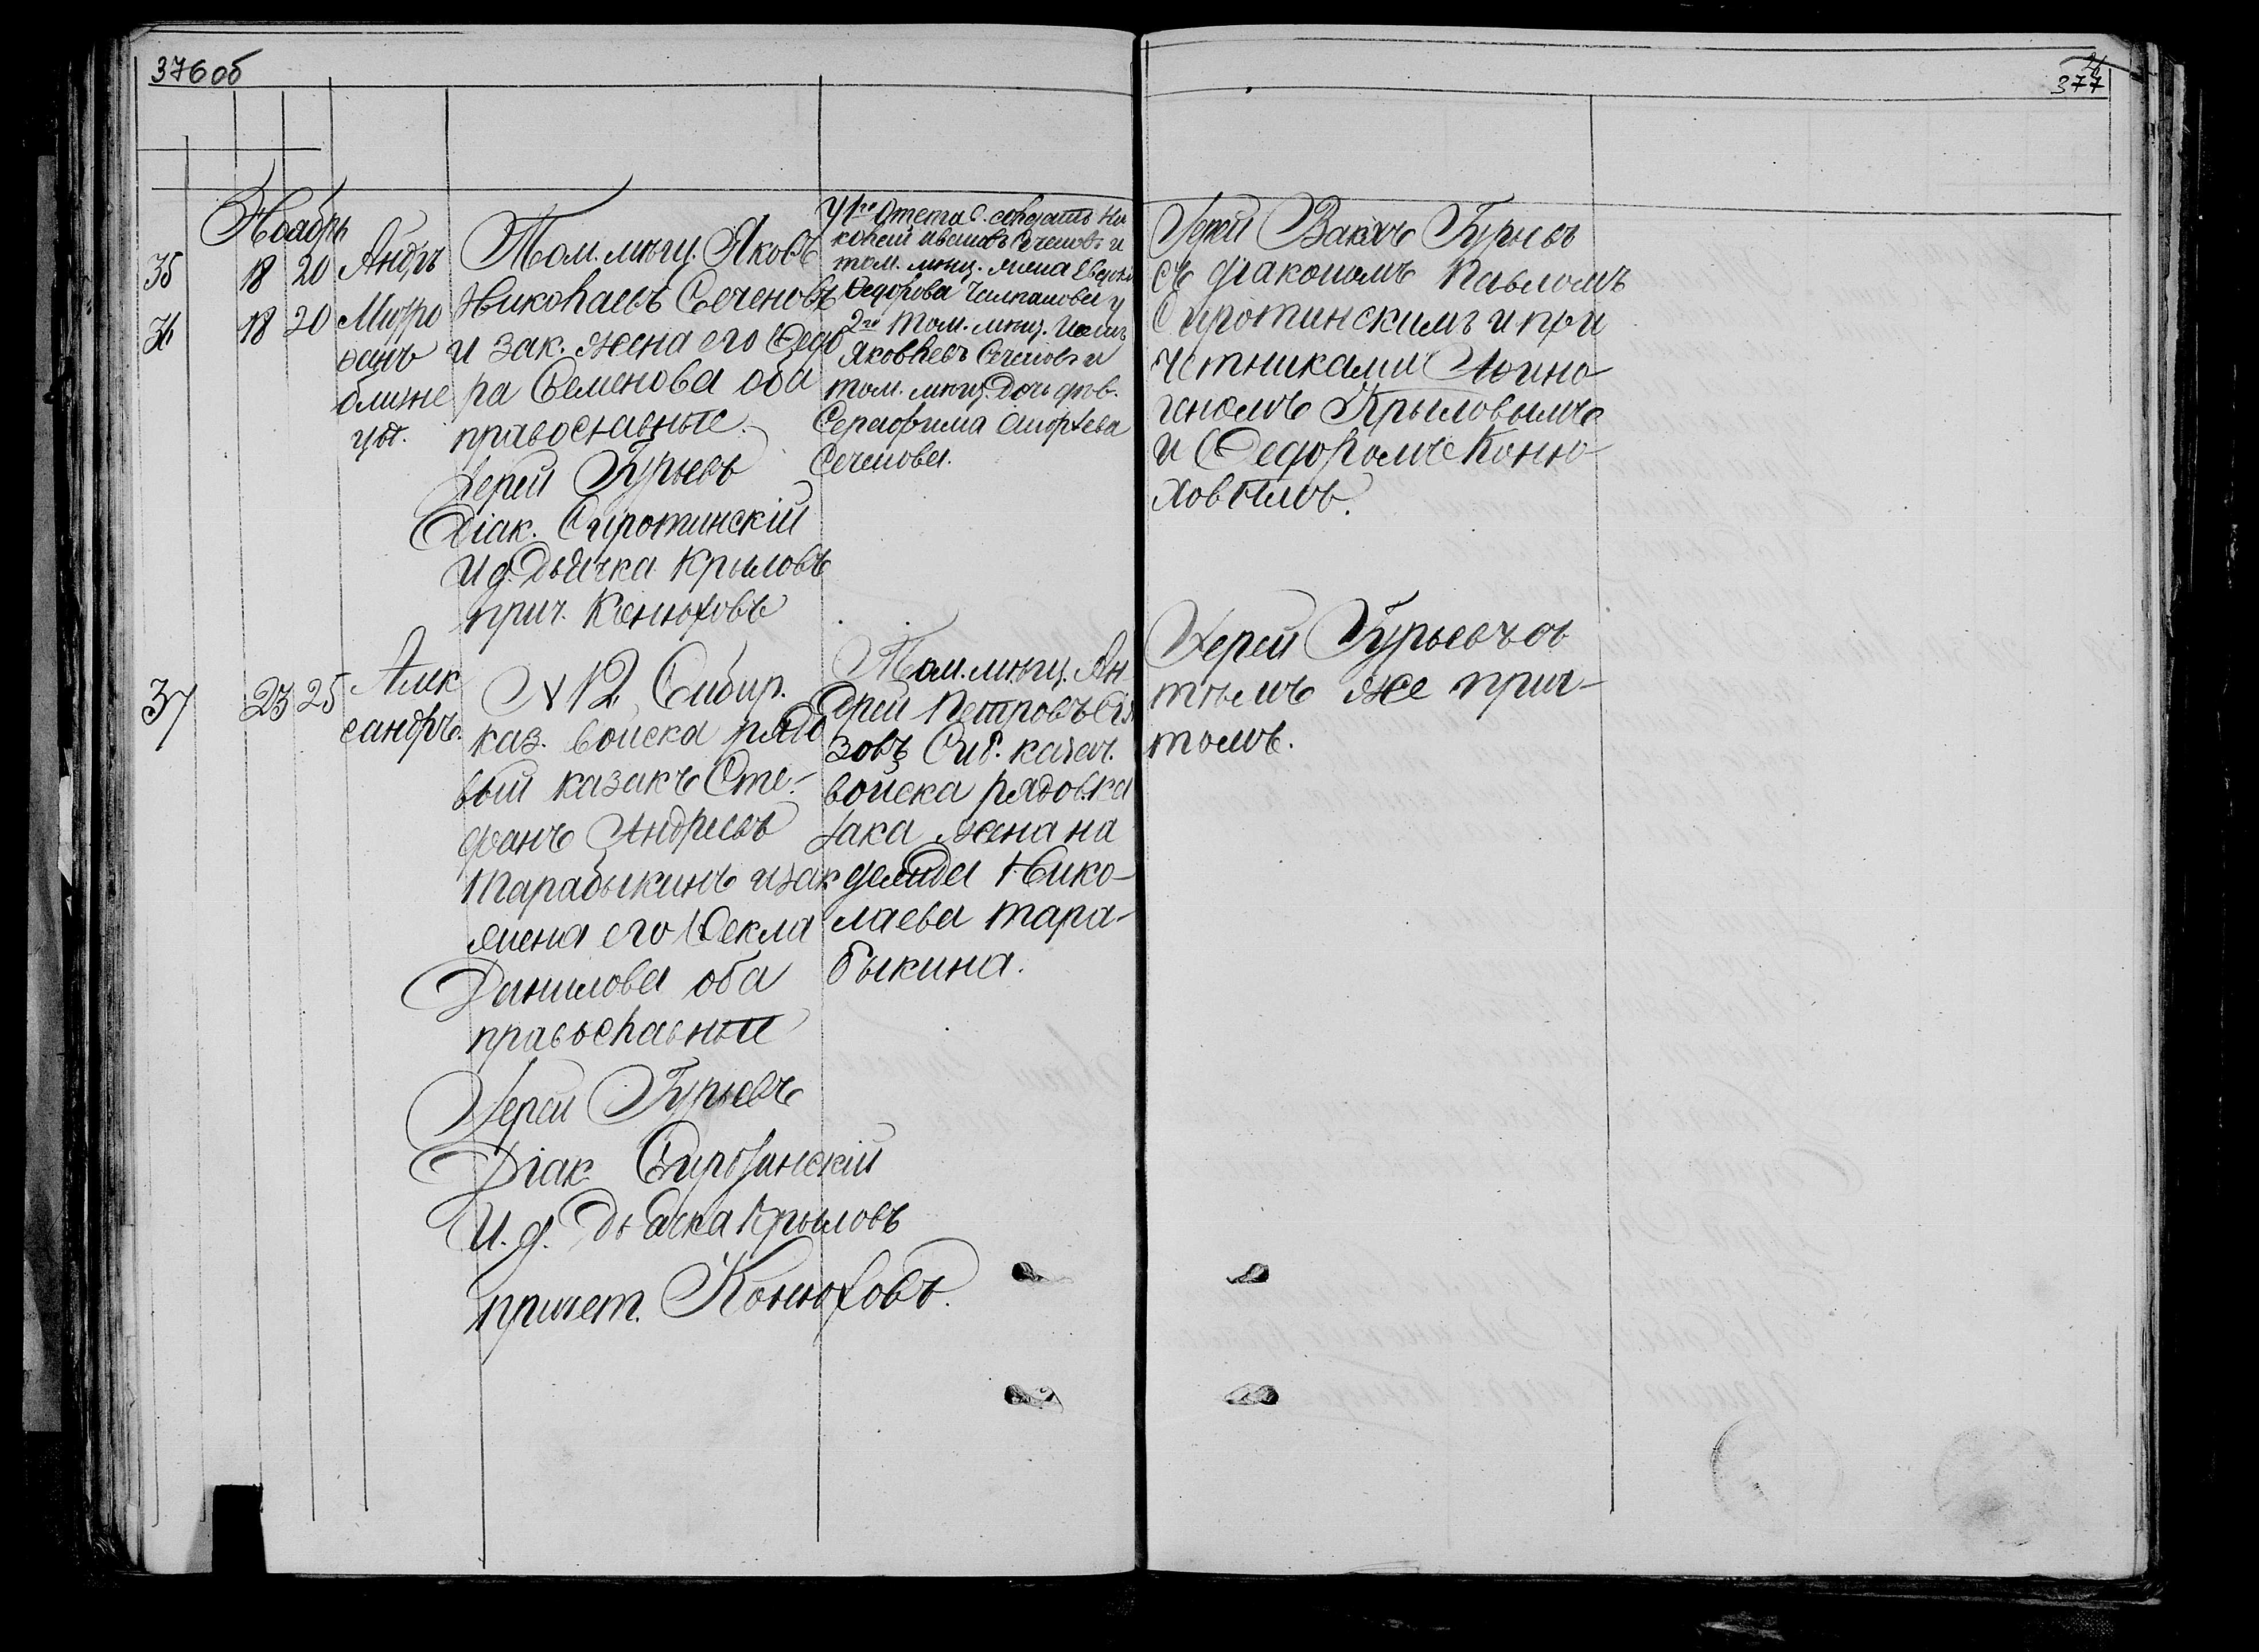 376 об
377
Ноабрь
35 18 20 Андръ
36 18 20 Митро
фанъ
близне
цы.
Том. мѣщ. Яковъ
Николаевъ Сеченовъ
и зак. жена его Ѳедо
ра Семенова оба
православные.
Іерей Гурьевъ
Діак. Сиротинскій
И д. Дьячка Крыловъ
прич. Конюховъ
У 1го Отста С. солдатъ Ни
колай Ивановъ Сеченовъ и
том. мѣщ. жена Евдок
Ѳедорова у
2го Том. мѣщ.
Яковлевъ Сеченовъ и
том. мѣщ. дочь
Серафима
Сеченова.
Іерей Вакхъ Гурьевъ
съ діакономъ Павломъ
Сиротинскимъ и при
четниками Аѳино
геномъ Крыловымъ
и Ѳедоромъ Коню
ховымъ.
37 23 25 Алек
сандръ.
N 12 Сибир.
каз. войска рядо
вый казакъ Сте-
фанъ Андреевъ
Тарабыкинъ и зак
жена его Ѳекла
Данилова оба
православные
Іерей Гурьевъ
Діак Сиротинскій
И. д. Дьячка Крыловъ
причет. Конюховъ.
Том. мѣщ. Ан
дрей Петровъ
зовъ Сиб. казач.
войска рядов. ка
зака жена На
дежда Нико-
лаева Тара-
быкина.
Іерей Гурьевъ съ
тѣмъ же прич-
томъ.